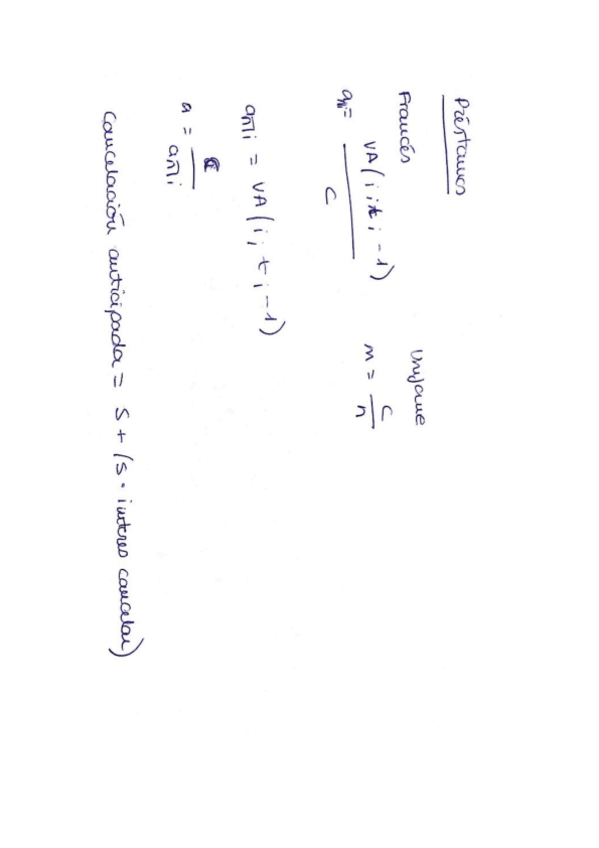 Préstamos
Francés
Uniforme
an̅i = VA(i;t;-1) / C
m = C / n
an̅i = VA(i;t;-1)
a = C / an̅i
Cancelación anticipada = S + (S · interes cancelar)